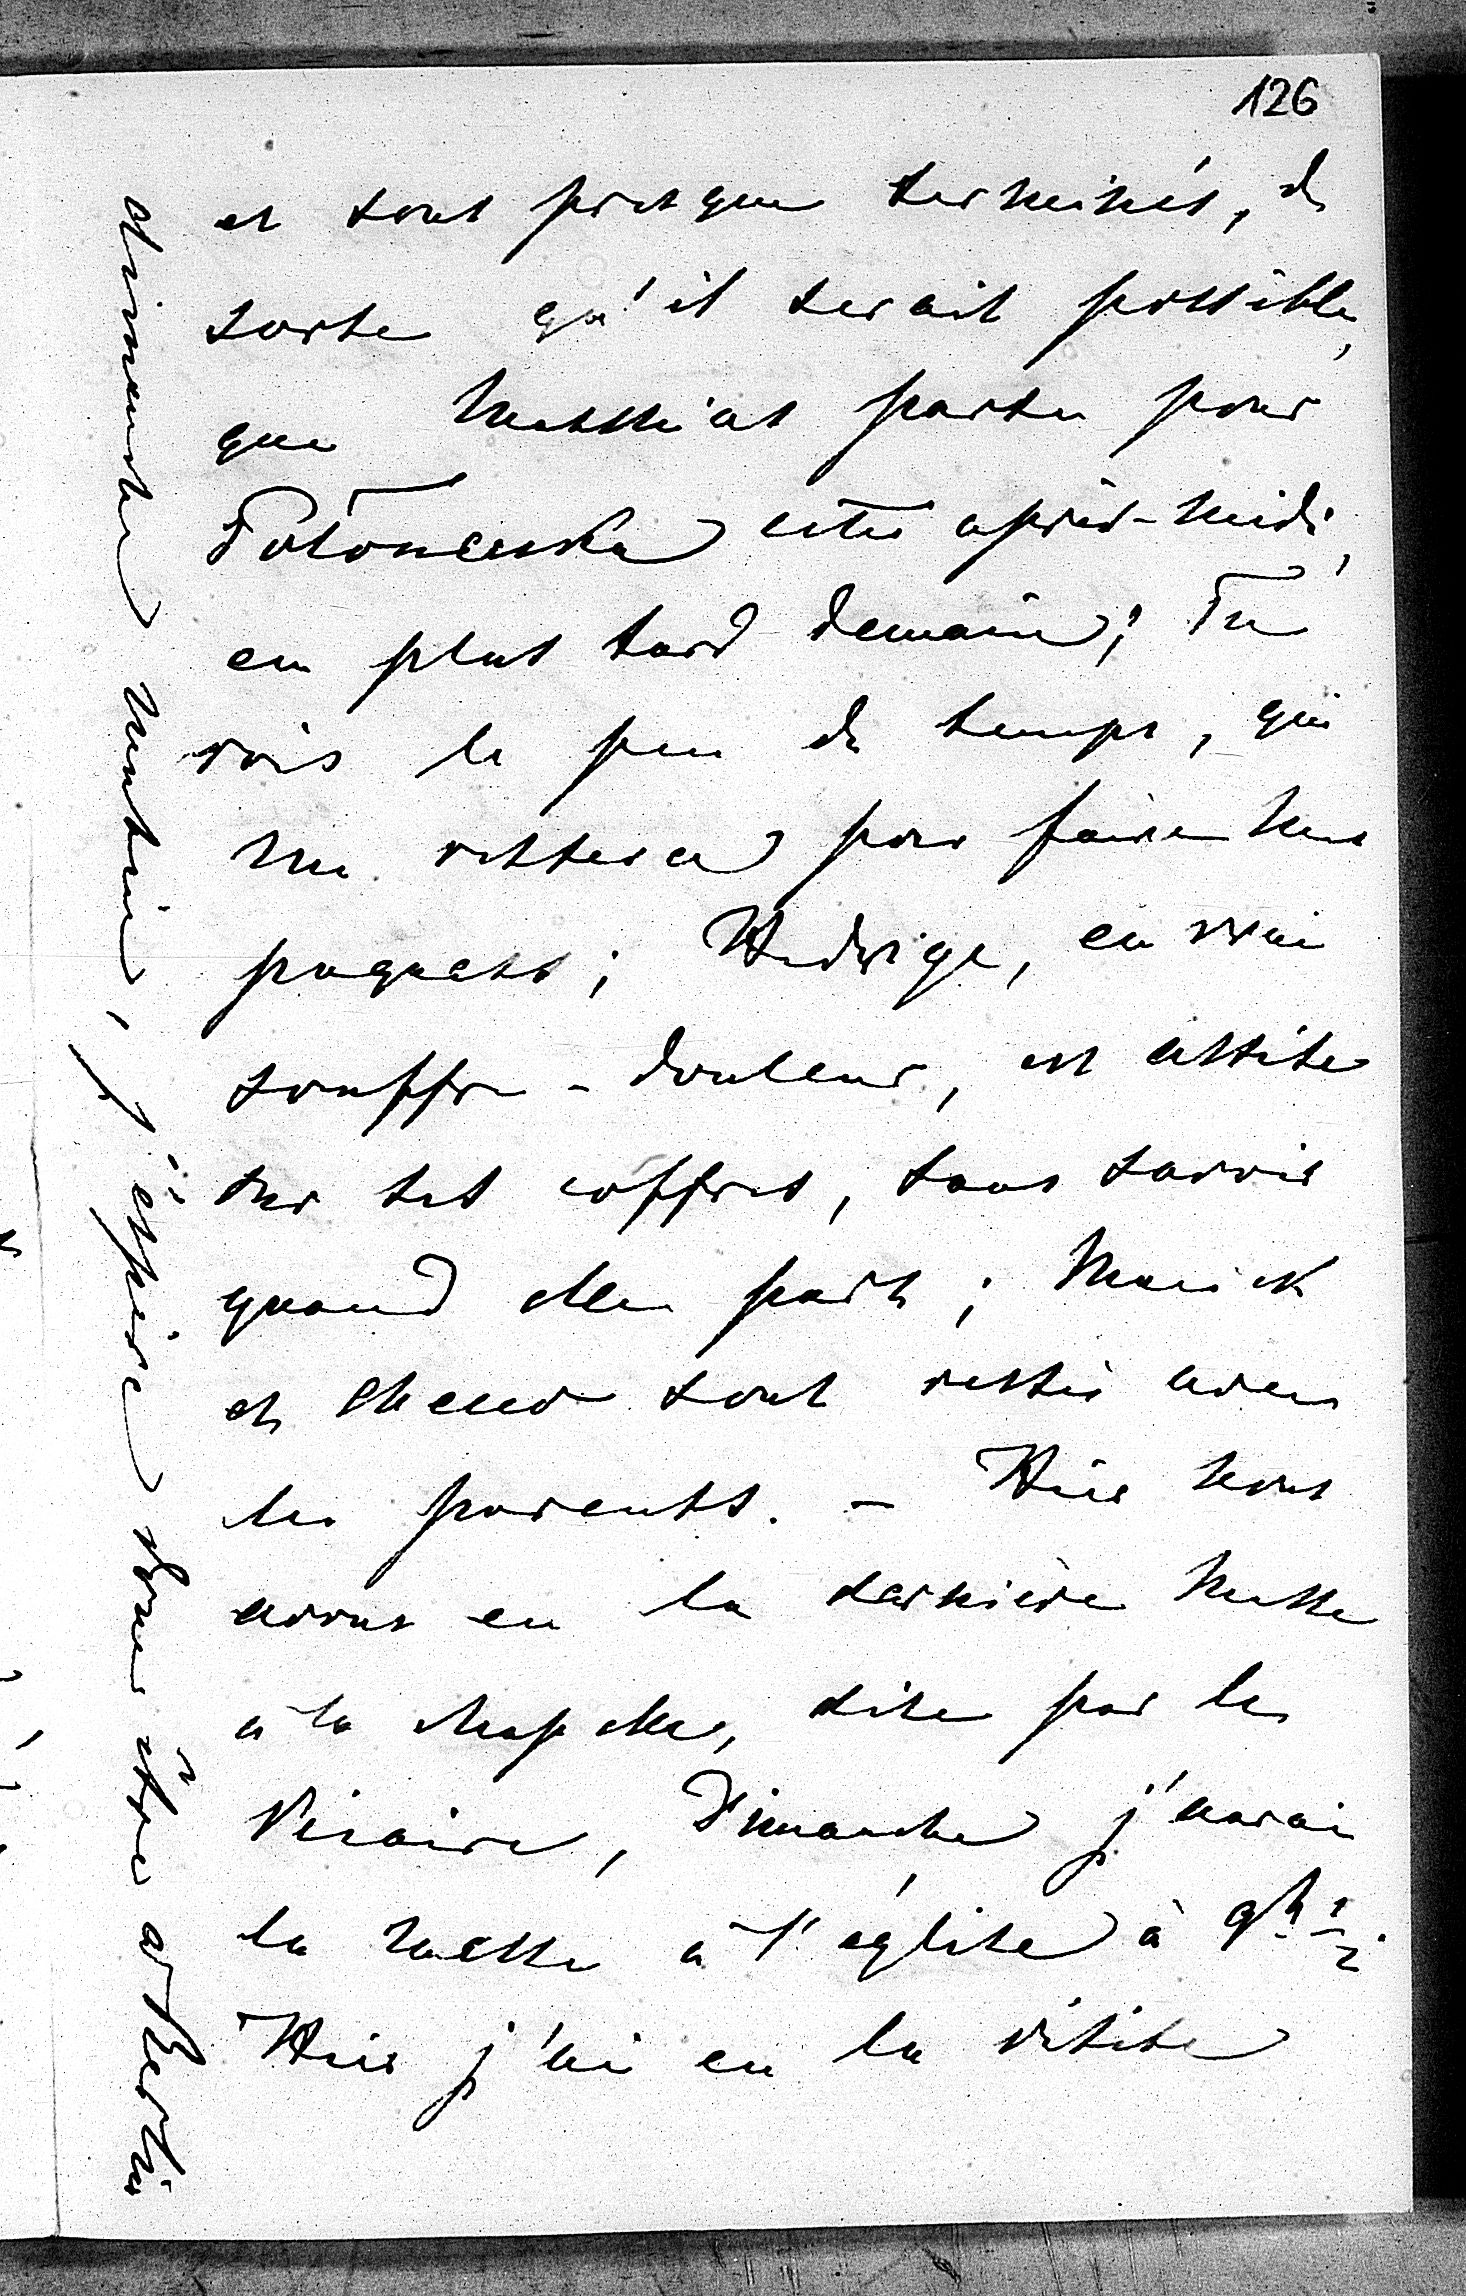 126
et sont presque terminés, de
sorte qu'il serait possible,
que Matthias parte pour
cette après-midi,
au plus tard demain; Tu
vois le peu de temps, qui
me restera pour faire mes
paquets; Hedwige, en vrai
souffre-douleur, est assise
sur ses coffres, sans savoir
quand elle part; Marick
et sont restés avec
les parents. – Hier nous
avons eu la dernière Messe
à la chapelle, dite par le
Vicaire, Dimanche j'aurai
la messe à l'église à 9h ½.
Hier j'ai eu la visite
dimanche matin, j'éspère donc être à Berlin